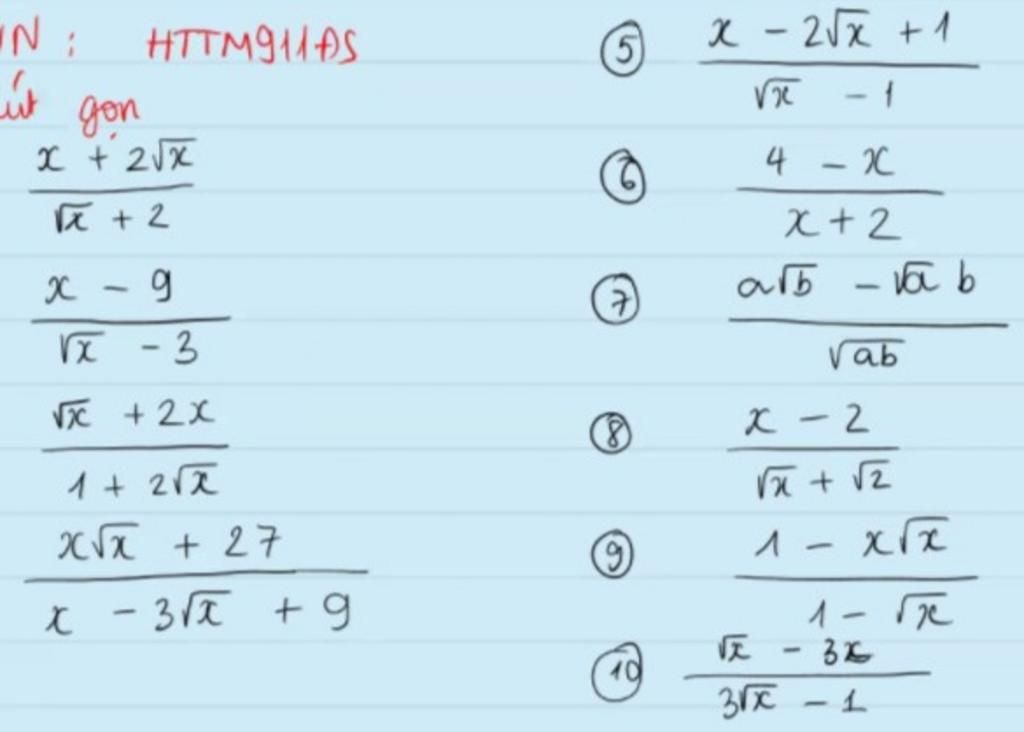 IN : HTTM911ĐS
út gọn
x + 2√x
√x + 2
x - 9
√x - 3
√x + 2x
1 + 2√x
x√x + 27
x - 3√x + 9
⑤ x - 2√x + 1
√x - 1
⑥ 4 - x
x + 2
⑦ a√b - √a b
√ab
⑧ x - 2
√x + √2
⑨ 1 - x√x
1 - √x
⑩ √x - 3x
3√x - 1